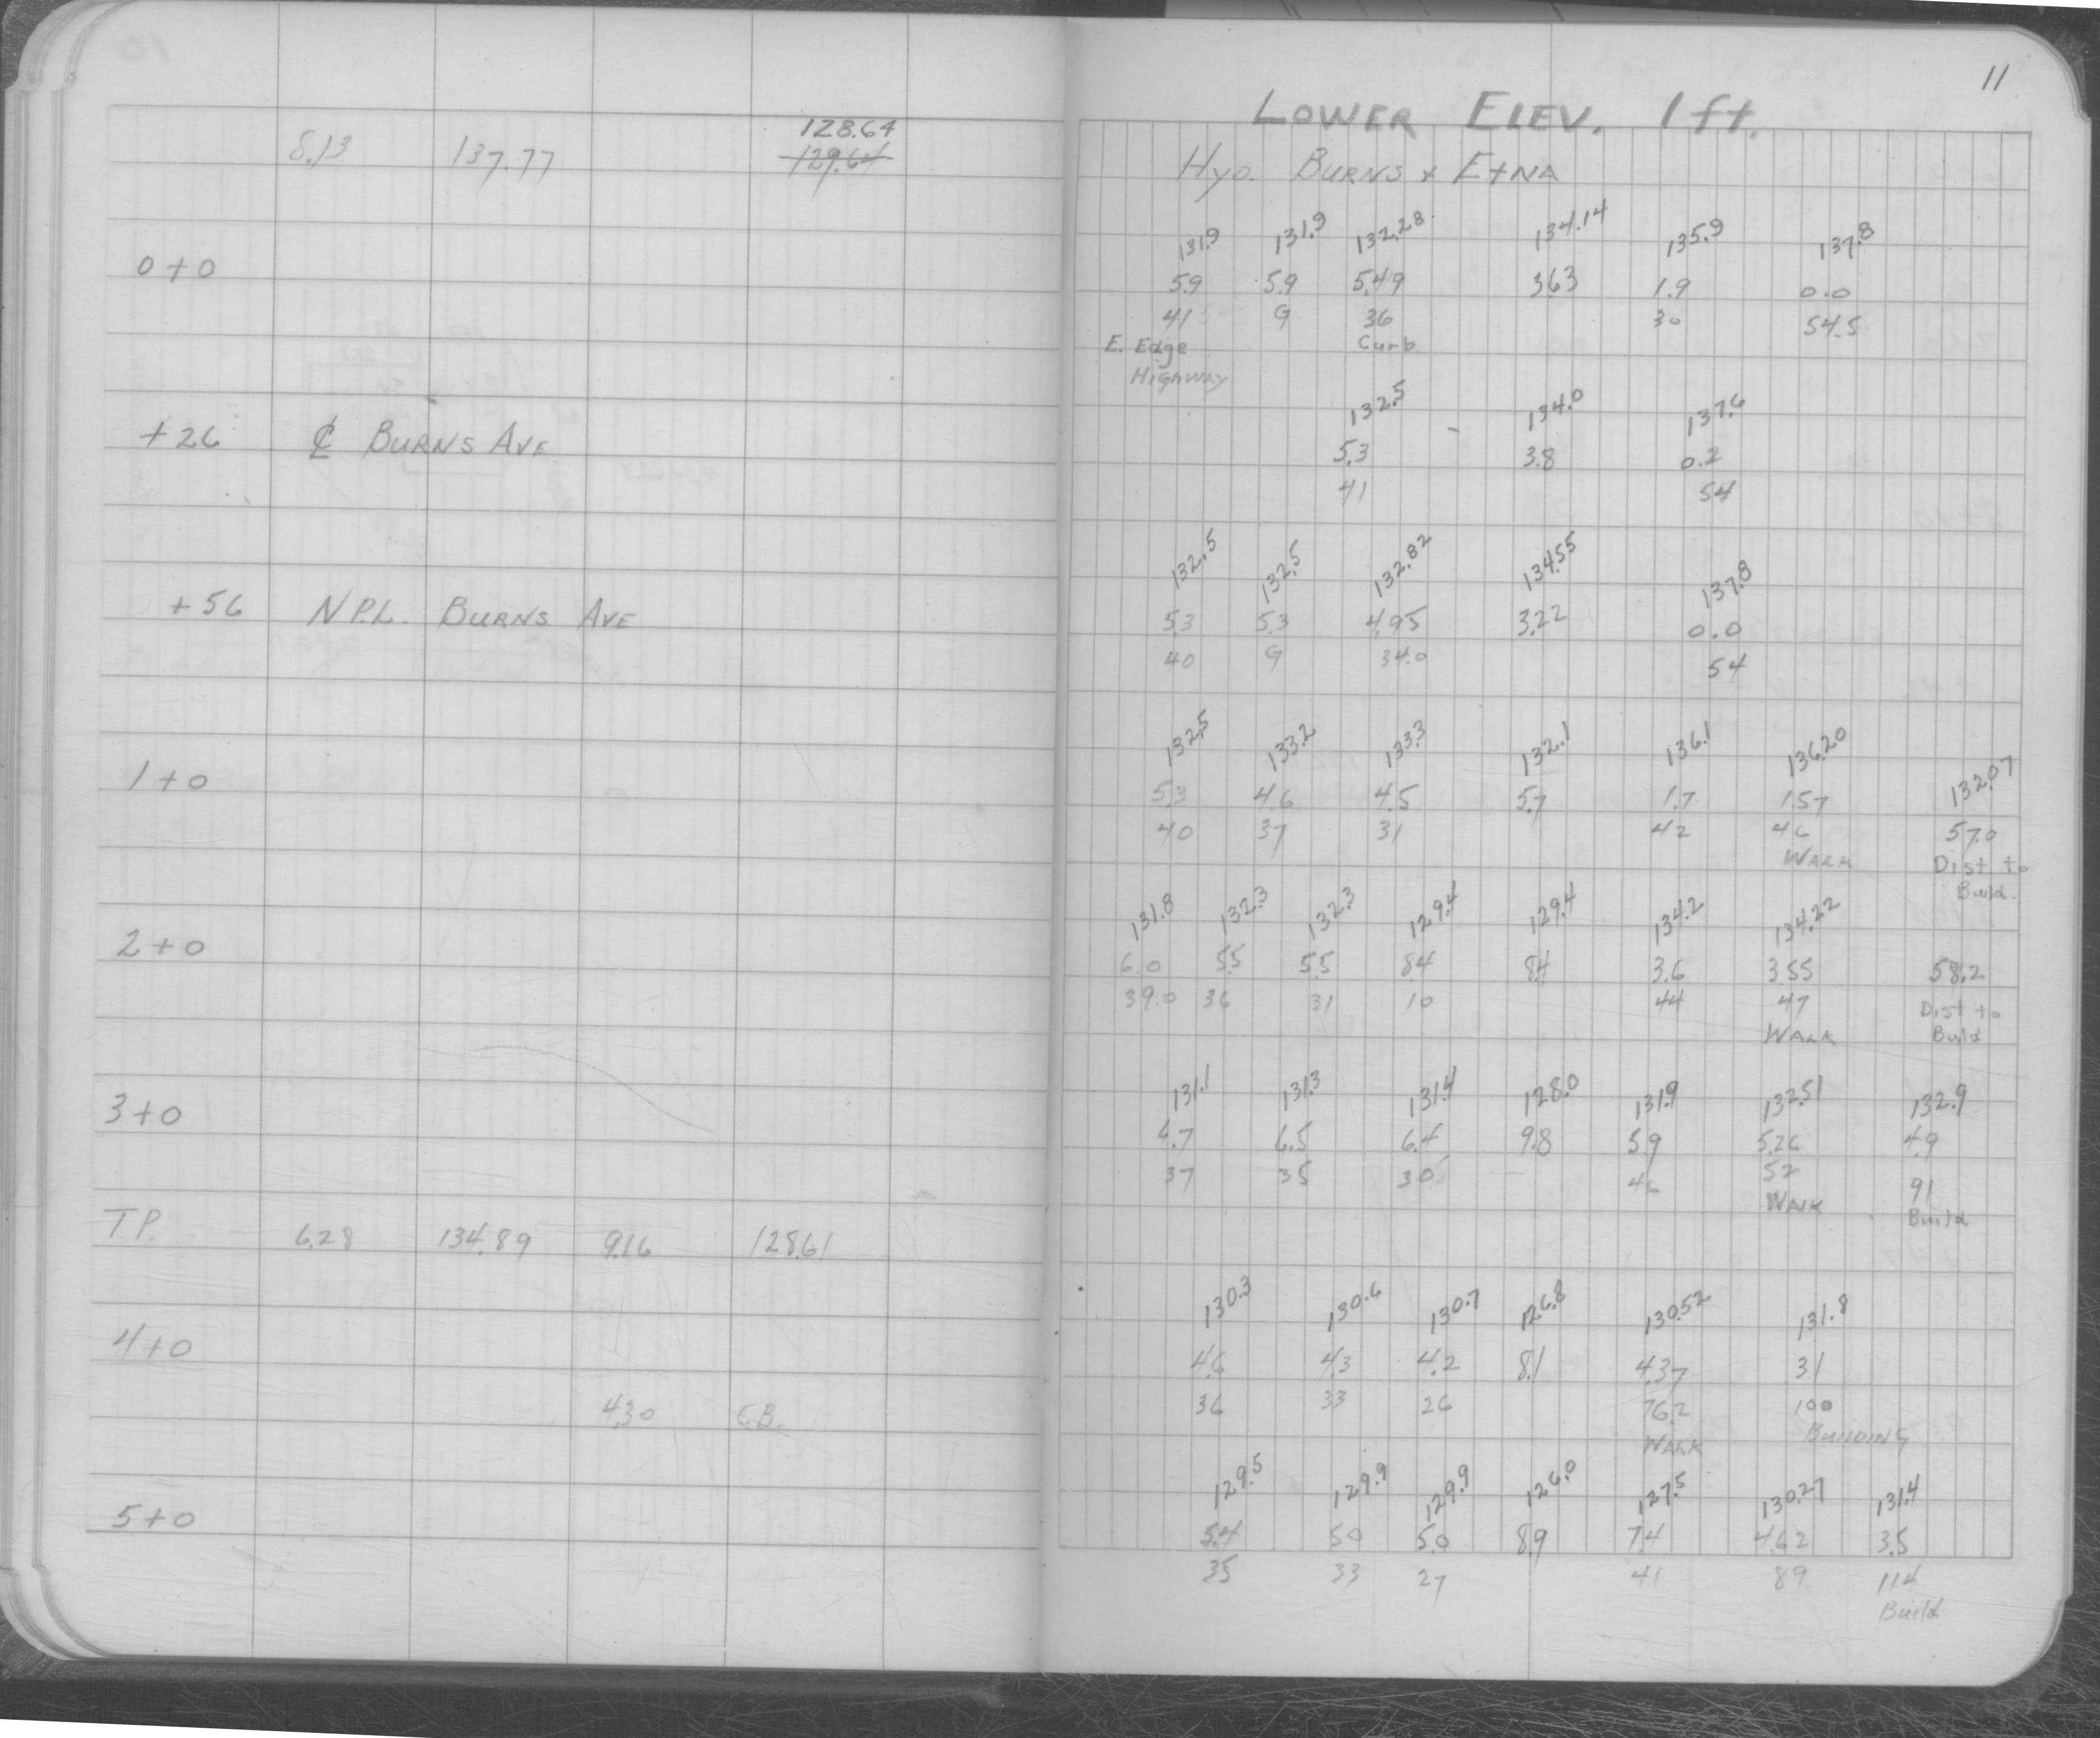 11
LOWER ELEV. 1 ft.
8.13 137.77 128.64
129.64
Hyd. BURNS & ETNA
131.9 131.9 132.28 134.14 135.9 137.8
0+0 5.9 5.9 5.49 3.63 1.9 0.0
41 G 36 30 54.5
E. Edge Curb
HIGHWAY
132.5 134.0 137.6
+26 ℄ BURNS AVE 5.3 3.8 0.2
41 54
132.5 132.5 132.82 134.55 137.8
+56 N P.L. BURNS AVE 5.3 5.3 4.95 3.22 0.0
40 G 34.0 54
132.5 133.2 133.3 132.1 136.1 136.20 132.07
1+0 5.3 4.6 4.5 5.7 1.7 1.57
40 37 31 42 46 57.0
WALK Dist to
Build.
131.8 132.3 132.3 129.4 129.4 134.2 134.22
2+0 6.0 5.5 5.5 8.4 8.4 3.6 3.55 58.2
39.0 36 31 10 44 47 Dist to
WALK Build
131.1 131.3 131.4 128.0 131.9 132.51 132.9
3+0 6.7 6.5 6.4 9.8 5.9 5.26 4.9
37 35 30 46 52 91
WALK Build
T P. 6.28 134.89 9.16 128.61
130.3 130.6 130.7 126.8 130.52 131.8
4+0 4.6 4.3 4.2 8.1 4.37 3.1
4.30 C.B. 36 33 26 76.2 100
WALK BUILDING
129.5 129.9 129.9 126.0 127.5 130.27 131.4
5+0 5.4 5.0 5.0 8.9 7.4 4.62 3.5
35 33 27 41 89 114
Build